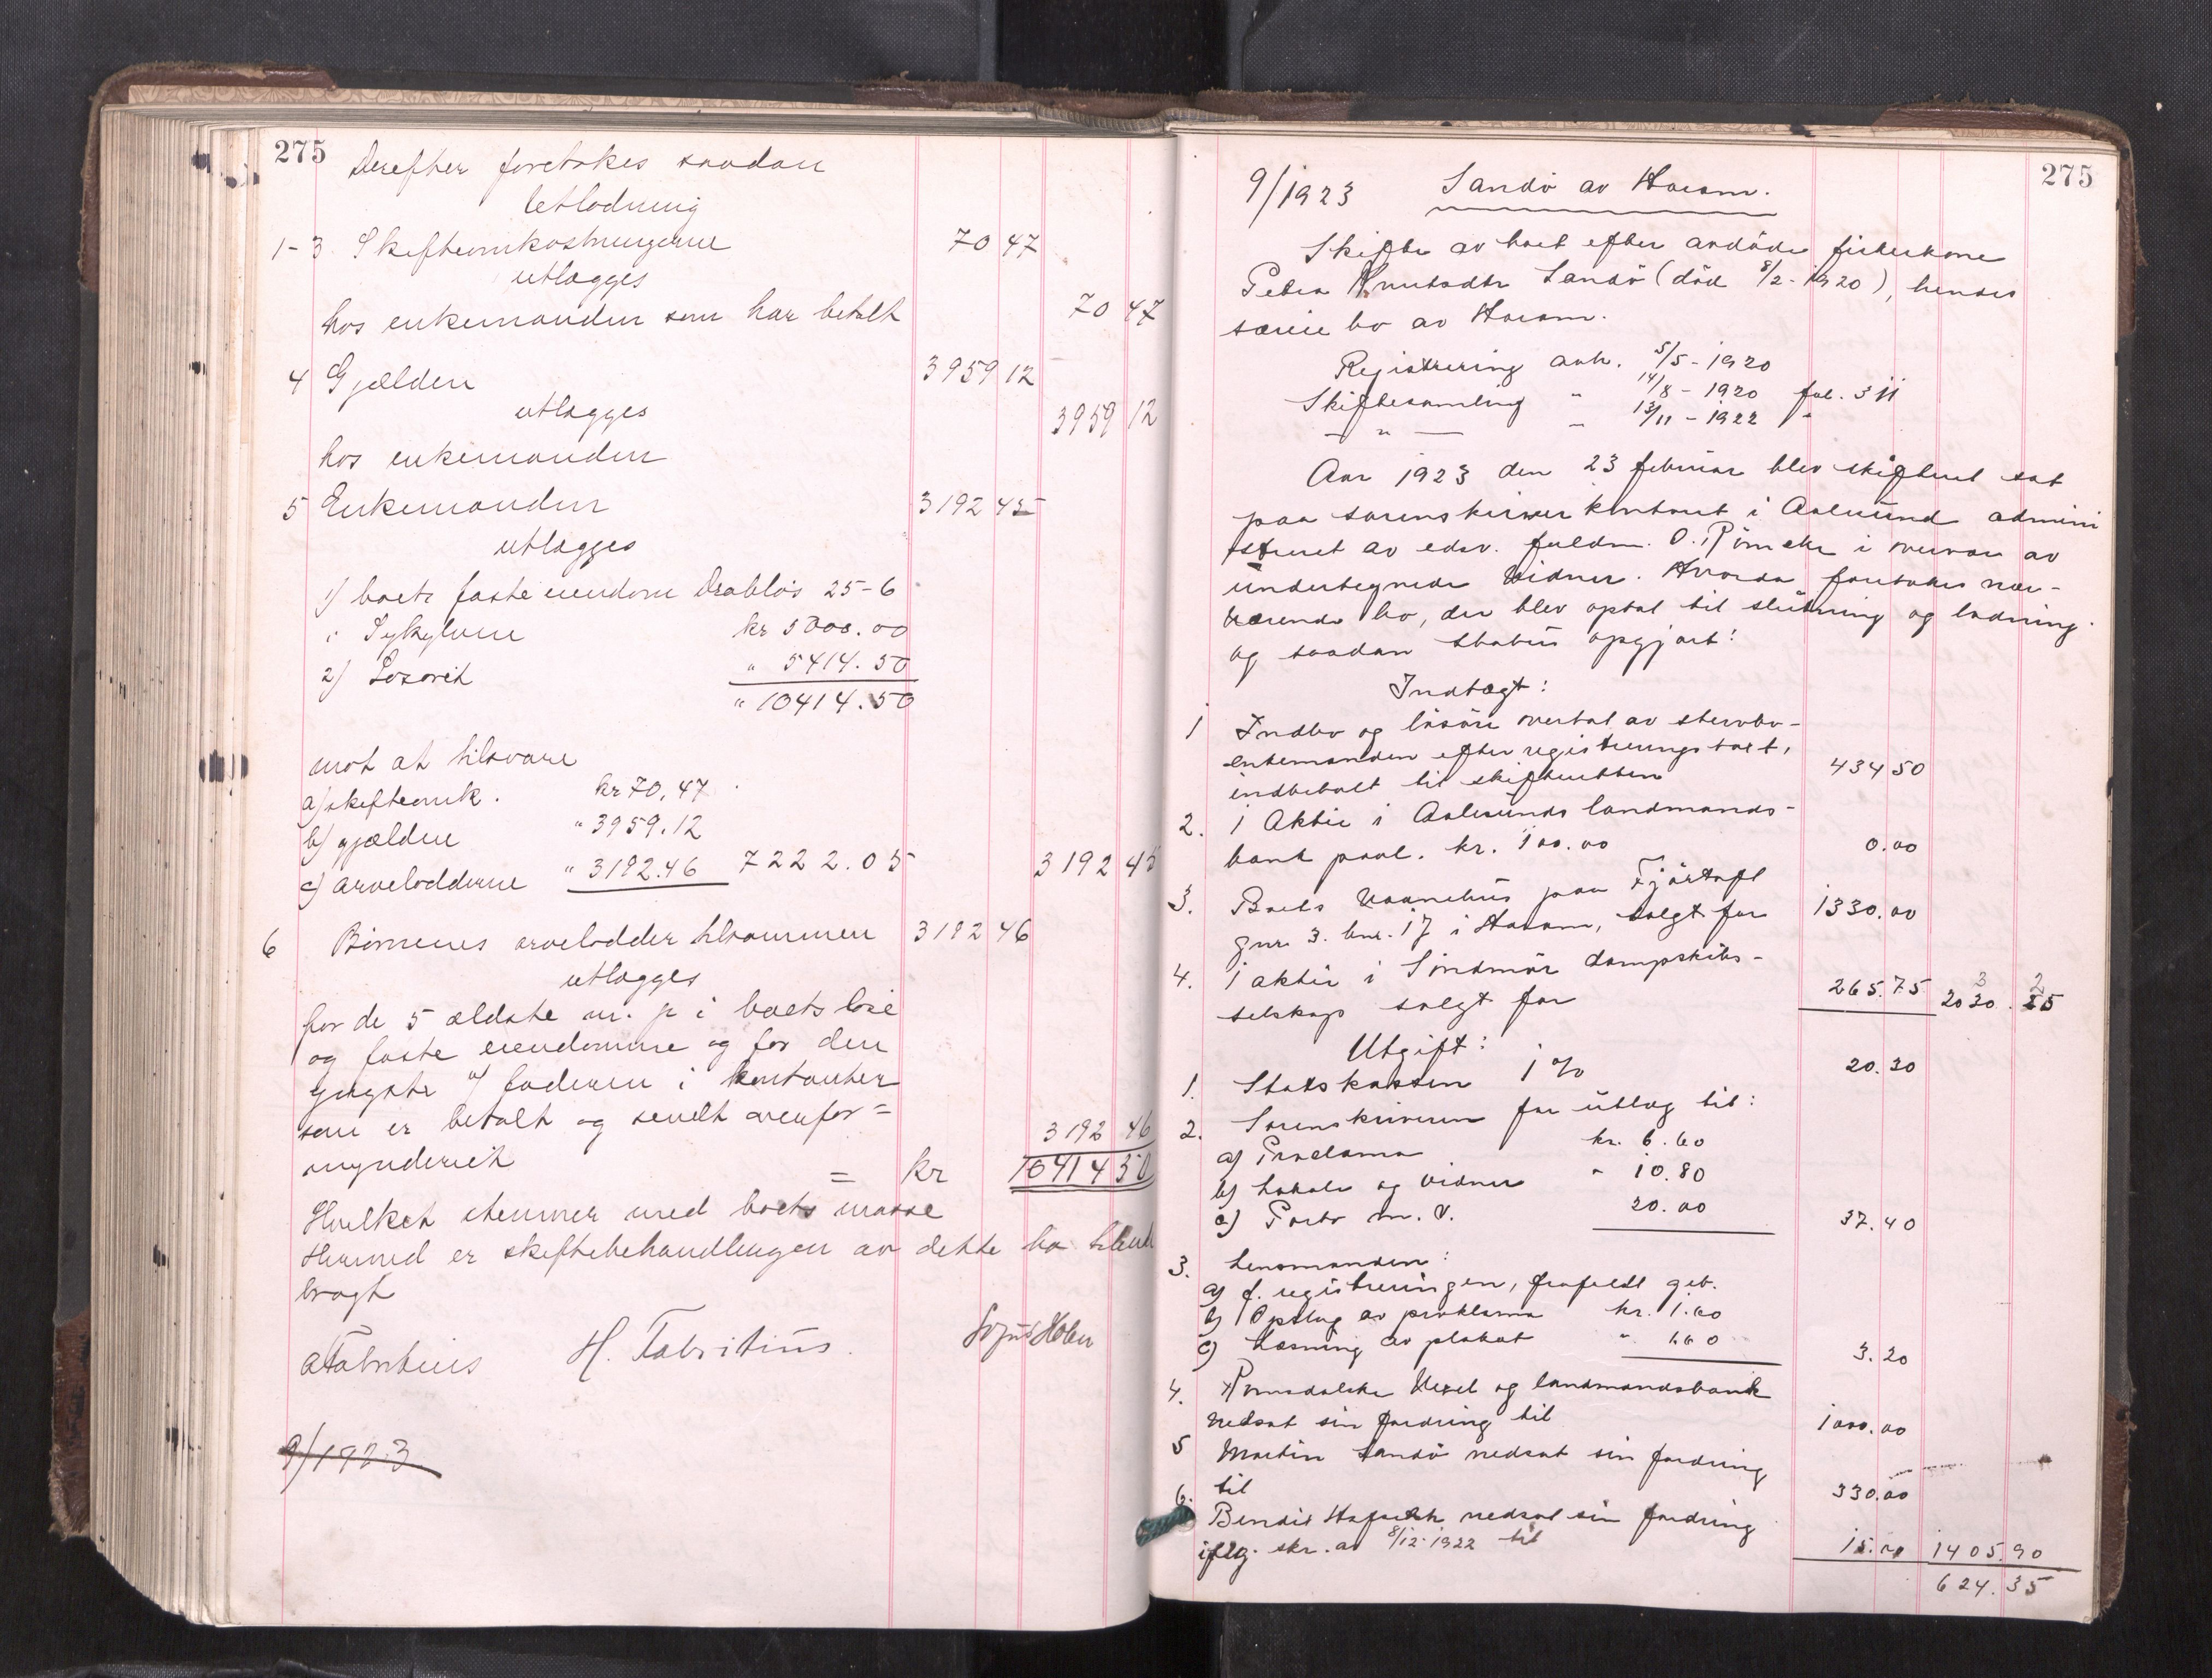 275
Derefter foretokes saadan
Utlodning
1-3 Skifteomkostningerne 70 47
utlægges
hos enkemanden som har betalt 70 47
4 Gjælden 3959 12
utlægges 3959 12
hos enkemanden
5 Enkemanden 3192 45
utlægges
1) boets faste eiendom Drabløs 25-6
i Sykylven kr 5000.00
2) Løsøret " 5414.50
" 10414.50
mot at tilsvare
a) skifteomk. kr 70,47
b) gjælden " 3959.12
c) arvelodderne " 3192.46 7222.05 3192 45
6 Børnenes arvelodder tilsammen 3192 46
utlægges
for de 5 ældste m. p i boets løse
og faste eiendomme og for den
yngste af faderen i kontanter
som er betalt og sendt overfor=
mynderiet 3192 46
= kr 10414 50
Hvilket stemmer med boets masse
Hermed er skiftebehandlingen av dette bo tilende
bragt
H. Fabritius.
9/1923
275
9/1923 Sandø av Haram.
Skifte av boet efter avdøde fiskerkone
Petra Knutsdtr Sandø (død 8/2-1920), hendes
særeie bo av Haram.
Registrering avh. 5/5-1920
Skiftesamling " 14/8-1920 fol. 311
— " — " 13/11-1922 "
Aar 1923 den 23 februar blev skifteret sat
paa sorenskriverkontoret i Aalesund admini
streret av edsv. fuldm. O. Rømcke i overvær av
undertegnede vidner. Hvorda foretokes nær-
værende bo, der blev optat til slutning og lodning
og saadan status opgjort:
Indtægt:
1 Indbo og løsøre overtat av stervbo-
enkemanden efter registreringstakst,
indbetalt til skifteretten 434 50
2. 1 Aktie i Aalesunds landmands-
bank paal. kr. 100.00 0.00
3. Boets vaanehus paa Fjørtoft
gnr. 3. bnr. 17 i Haram, solgt for 1330.00
4. 1 aktie i Søndmør dampskibs-
selskap solgt for 265.75 2030.25
Utgift:
1. Statskassen 1 % 20.30
2. Sorenskriveren for utlæg til:
a) Proclama kr. 6.60
b) Lokale og vidner " 10.80
c) Porto m. v. 20.00 37.40
3. Lensmanden:
a) f. registreringen, frafaldt geb.
b) Opslag av proklama kr. 1.60
c) Læsning av plakat " 1.60 3.20
4. Romsdalske Vexel og landmandsbank
nedsat sin fordring til 1000.00
5 Martin Sandø nedsat sin fordring
til 330.00
6. Bendik nedsat sin fordring
iflg. skr. av 8/12-1922 til 15.00 1405.90
624.35